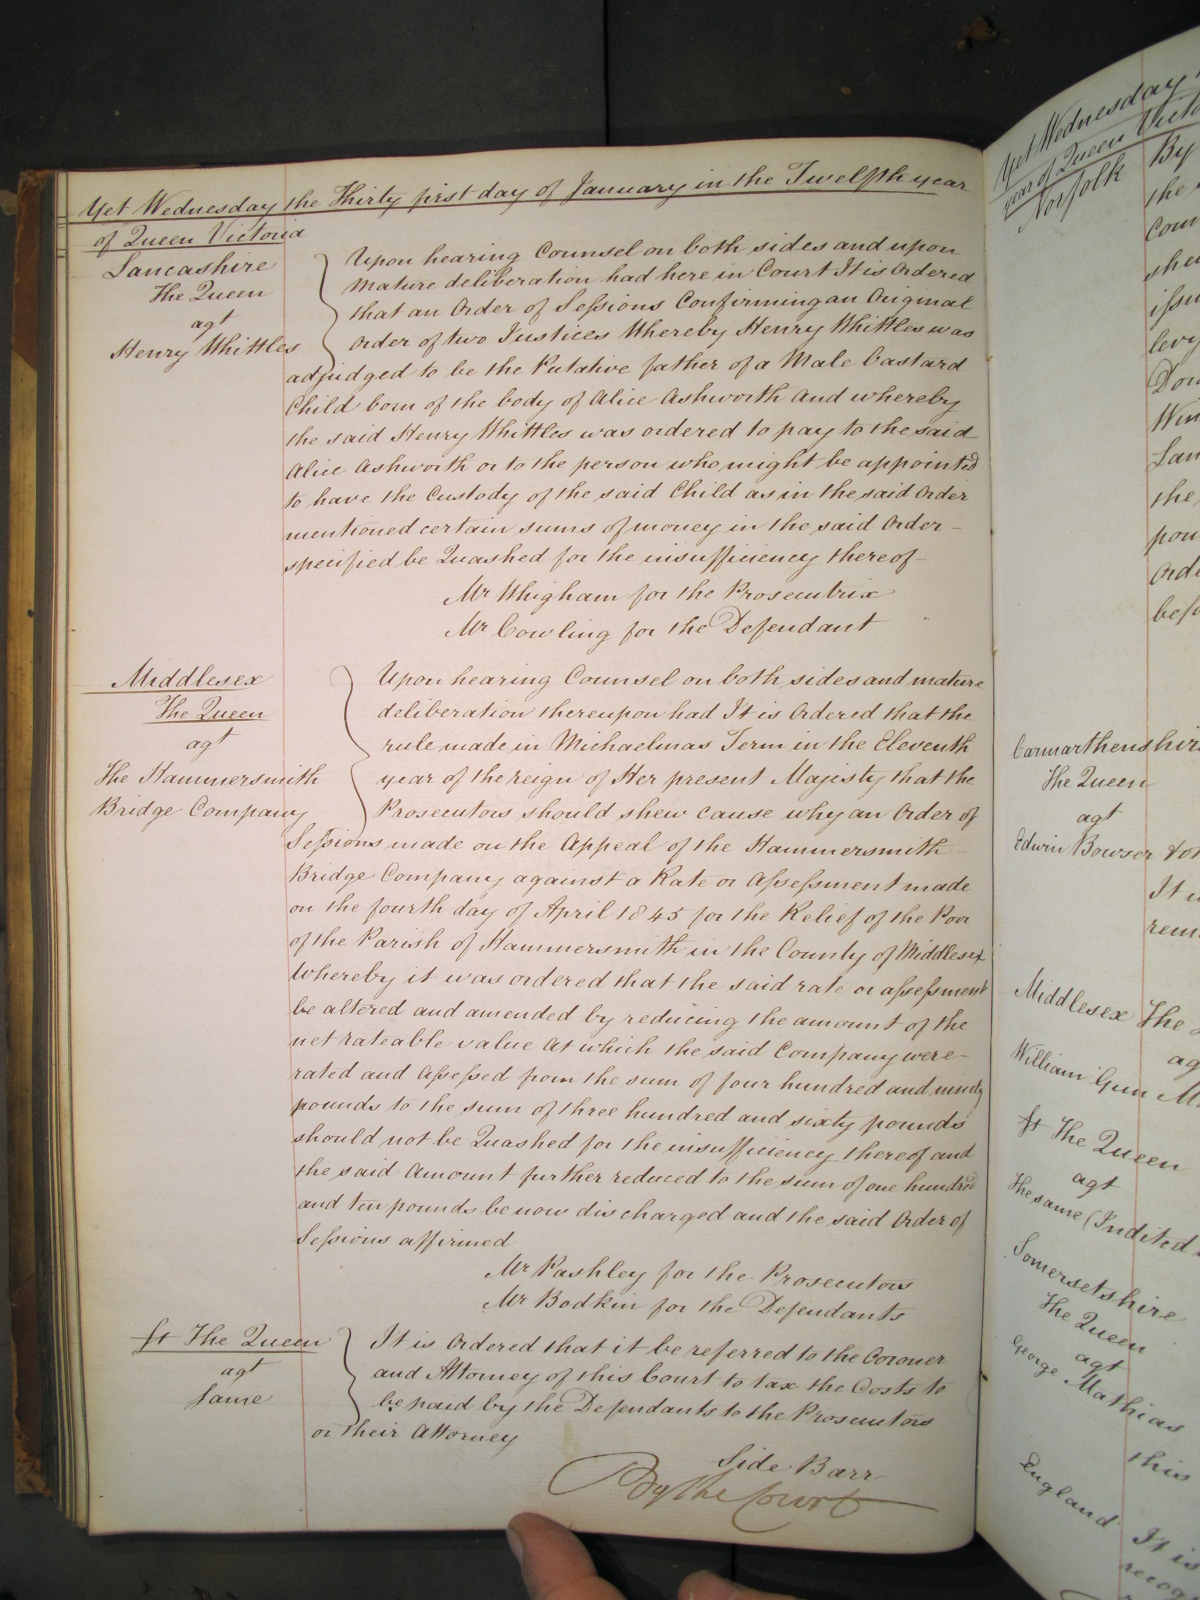 Yet Wednesday the Thirty first day of January in the Twelfth year
of Queen Victoria
Lancashire
The Queen
agt
Henry Whittles
Upon hearing Counsel on both sides and upon
mature deliberation had here in Court It is Ordered
that an Order of Sessions Confirming an Original
Order of two Justices Whereby Henry Whittles was
adjudged to be the Putative father of a Male bastard
Child born of the body of Alice Ashworth and whereby
the said Henry Whittles was ordered to pay to the said
Alice Ashworth or to the person who might be appointed
to have the Custody of the said Child as in the said Order
mentioned certain sums of money in the said Order
specified be Quashed for the insufficiency thereof
Mr Whigham for the Prosecutrix
Mr Cowling for the Defendant
Middlesex
The Queen
agt
The Hammersmith
Bridge Company
Upon hearing Counsel on both sides and mature
deliberation thereupon had It is Ordered that the
rule made in Michaelmas Term in the Eleventh
year of the reign of Her present Majesty that the
Prosecutors should shew cause why an Order of
Sessions made on the Appeal of the Hammersmith
Bridge Company against a Rate or Assessment made
on the fourth day of April 1845 for the Relief of the Poor
of the Parish of Hammersmith in the County of Middlesex
Whereby it was ordered that the said rate or assessment
be altered and amended by reducing the amount of the
net rateable value at which the said Company were
rated and Assessed from the sum of four hundred and ninety
pounds to the sum of three hundred and sixty pounds
should not be Quashed for the insufficiency thereof and
the said Amount further reduced to the sum of one hundred
and ten pounds be now discharged and the said Order of
Sessions affirmed
Mr Pashley for the Prosecutors
Mr Bodkin for the Defendants
The Queen
agt
Same
It is Ordered that it be referred to the Coroner
and Attorney of this Court to tax the Costs to
be paid by the Defendants to the Prosecutors
or their Attorney
Side Barr
By the Court
Yet Wednesday
year of Queen
Norfolk By
the
shew
levy
the
Carmarthenshire
The Queen
agt
Edwin Bowser
It is
Middlesex The
William Gun
The Queen
agt
The same (Indicted
Somersetshire
The Queen
agt
George Mathias
this
England It is